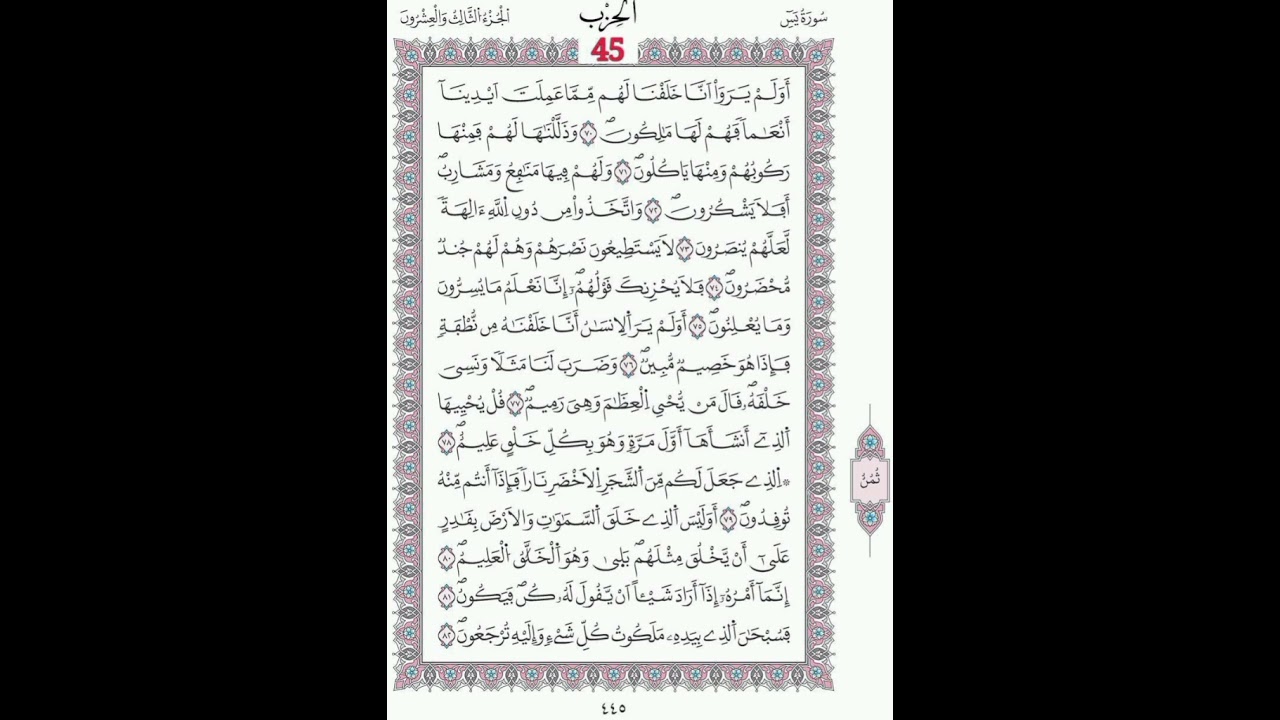 سُورَةُ يَسٓ
اَ۬لْحِزْب
اَ۬لْجُزْءُ اُ۬لثَّالِثُ وَالْعِشْرُونَ
45
أَوَلَمْ يَرَوَاْ اَنَّا خَلَقْنَا لَهُم مِّمَّا عَمِلَتَ اَيْدِينَآ
أَنْعَٰماٗ فَهُمْ لَهَا مَٰلِكُونَۖ ٧٠ وَذَلَّلْنَٰهَا لَهُمْ فَمِنْهَا
رَكُوبُهُمْ وَمِنْهَا يَاكُلُونَۖ ٧١ وَلَهُمْ فِيهَا مَنَٰفِعُ وَمَشَارِبُۖ
أَفَلَا يَشْكُرُونَۖ ٧٢ وَاتَّخَذُواْ مِن دُونِ اِ۬للَّهِ ءَالِهَةٗ
لَّعَلَّهُمْ يُنصَرُونَ ٧٣ لَا يَسْتَطِيعُونَ نَصْرَهُمْ وَهُمْ لَهُمْ جُندٞ
مُّحْضَرُونَۖ ٧٤ فَلَا يُحْزِنكَ قَوْلُهُمُۥٓۖ إِنَّا نَعْلَمُ مَا يُسِرُّونَ
وَمَا يُعْلِنُونَۖ ٧٥ أَوَلَمْ يَرَ اَ۬لِانسَٰنُ أَنَّا خَلَقْنَٰهُ مِن نُّطْفَةٖ
فَإِذَا هُوَ خَصِيمٞ مُّبِينٞۖ ٧٦ وَضَرَبَ لَنَا مَثَلٗا وَنَسِىَ
خَلْقَهُۥۖ قَالَ مَنْ يُّحْىِ اِ۬لْعِظَٰمَ وَهِىَ رَمِيمٞۖ ٧٧ قُلْ يُحْيِيهَا
اَ۬لذِےٓ أَنشَأَهَآ أَوَّلَ مَرَّةٖ وَهُوَ بِكُلِّ خَلْقٍ عَلِيمٌۖ ٧٨
۞ اِ۬لذِے جَعَلَ لَكُم مِّنَ اَ۬لشَّجَرِ اِ۬لَاخْضَرِ نَاراٗ فَإِذَآ أَنتُم مِّنْهُ
تُوقِدُونَۖ ٧٩ أَوَلَيْسَ اَ۬لذِے خَلَقَ اَ۬لسَّمَٰوَٰتِ وَالَارْضَ بِقَٰدِرٍ
عَلَىٰٓ أَنْ يَّخْلُقَ مِثْلَهُمۖ بَلَىٰ وَهُوَ اَ۬لْخَلَّٰقُ اُ۬لْعَلِيمُۖ ٨٠
إِنَّمَآ أَمْرُهُۥٓ إِذَآ أَرَادَ شَيْـٔاً اَنْ يَّقُولَ لَهُۥ كُنۖ فَيَكُونُۖ ٨١
فَسُبْحَٰنَ اَ۬لذِے بِيَدِهِۦ مَلَكُوتُ كُلِّ شَےْءٖ وَإِلَيْهِ تُرْجَعُونَۖ ٨٢
ثُمُنُ
٤٤٥